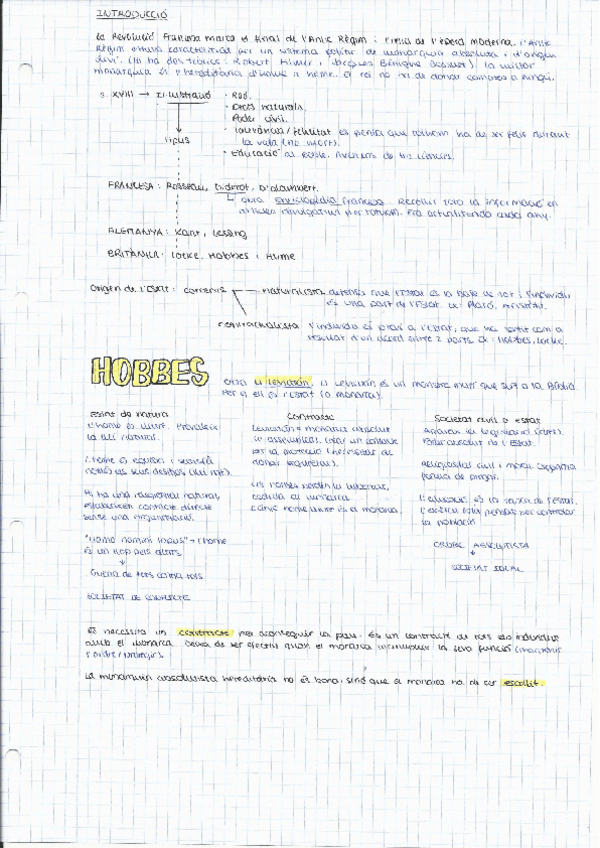 INTRODUCCIÓ
La Revolució Francesa marca el final de l'Antic Règim i l'inici de l'època moderna. L'Antic
Règim estava caracteritzat per un sistema polític de monarquia absoluta i d'origen
diví. (hi ha dos teòrics: Robert Filmer i Jacques Bénigne Bossuet). La millor
monarquia és l'hereditària d'home a home. El rei no ha de donar comptes a ningú.
s. XVIII → Il·lustració
· Raó.
· Drets naturals.
· Poder civil.
· Tolerància/felicitat es pensa que tothom ha de ser feliç durant
la vida (no mort).
· Educació al poble. Avenços de les ciències.
tipus
FRANCESA: Rosseau, Diderot, D'alambert.
obra enciclopèdia francesa. Recollir tota la informació en
articles divulgatius per tothom. Era actualitzada cada any.
ALEMANYA: Kant, Lessing
BRITÀNICA: Locke, Hobbes i Hume
Origen de l'Estat: corrents
naturalista defensa que l'Estat és la base de tot i l'individu
és una part de l'Estat. Ex: Plató, Aristòtil.
contractualista l'individu és previ a l'Estat, que ha sortit com a
resultat d'un acord entre 2 parts. Ex: Hobbes, Locke.
HOBBES
Obra: El Leviatán. El Leviatán és un monstre marí que surt a la Bíblia.
Per ell és l'Estat (o monarca).
Estat de natura
L'home és lliure. Prevaleix
la llei natural.
L'home és egoista i satisfà
només els seus desitjos
Hi ha una
estableixen contracte
sense una
"Homo homini lupus" → l'home
és un llop pels altres
Guerra de tots contra tots
SOCIETAT DE CONFLICTE
Contracte
Leviatán = monarca absolut
o assemblea.
per la protecció (necessitat de
donar seguretat).
Els homes perden la llibertat,
cedida al monarca.
L'únic home lliure és el monarca.
Societat civil o Estat
Apareix la legislació (lleis).
Poder absolut de l'Estat.
civil i
forma de pensar.
L'educació és la tasca de l'Estat.
per controlar
la població
ORDRE ABSOLUTISTA
SOCIETAT IDEAL
És necessita un contracte per aconseguir la pau. És un contracte de tots els individus
amb el monarca. Deixa de ser efectiu quan el monarca incompleix la seva funció (mantenir
l'ordre
La monarquia absolutista hereditària no és bona, sinó que el monarca ha de ser escollit.